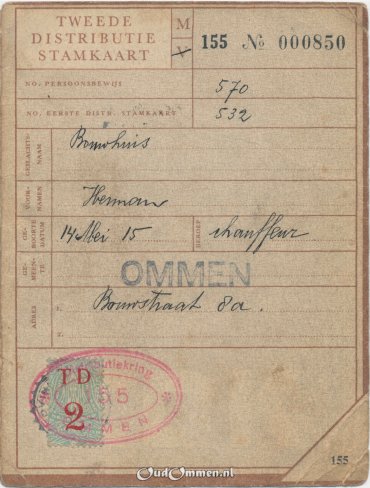 TWEEDE
DISTRIBUTIE
STAMKAART
M
V
155 No 000850
NO. PERSOONSBEWIJS 570
NO. EERSTE DISTR. STAMKAART 532
GESLACHTS-
NAAM
Bouwhuis
VOOR-
NAMEN
Herman
GE-
BOORTE
DATUM
14 Mei 15
BEROEP
chauffeur
GE-
MEEN-
TE
OMMEN
ADRES
1.
Bouwstraat 8a.
2.
TD
2
155
OMMEN
155
OudOmmen.nl